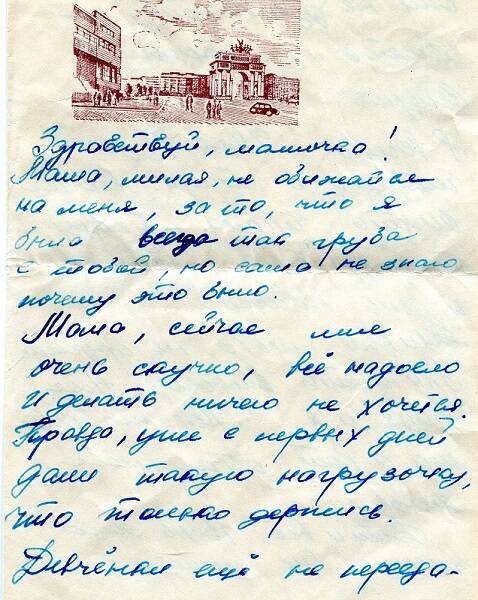 Здравствуй, мамочка!
Мама, милая, не обижайся
на меня, за то, что я
была всегда так груба
с тобой, но сама не знаю
почему это было.
Мама, сейчас мне
очень скучно, всё надоело
и делать ничего не хочется.
Правда, уже с первых дней
дали такую нагрузочку,
что только держись.
Девчёнки ещё не переда-